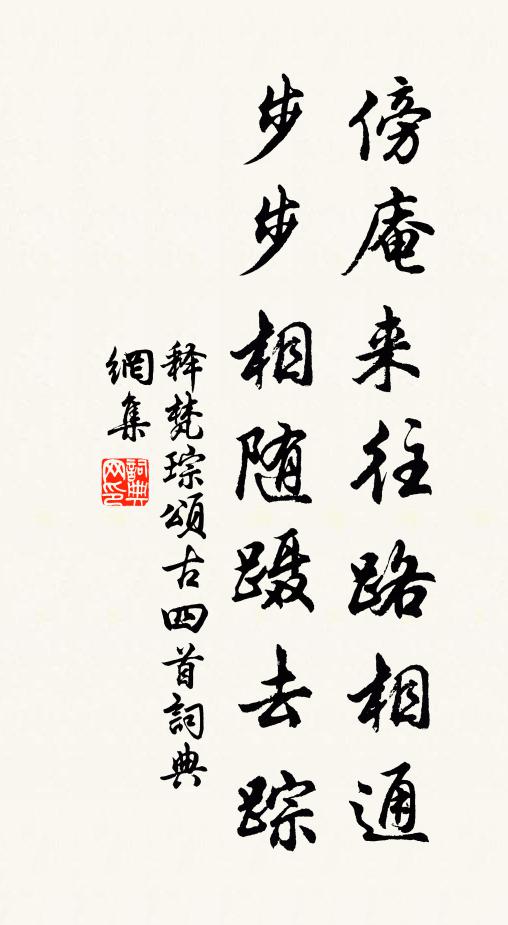 傍庵来往路相通
步步相随蹑去踪
释梵琮頌古四首詞典
網集
詞典
网印